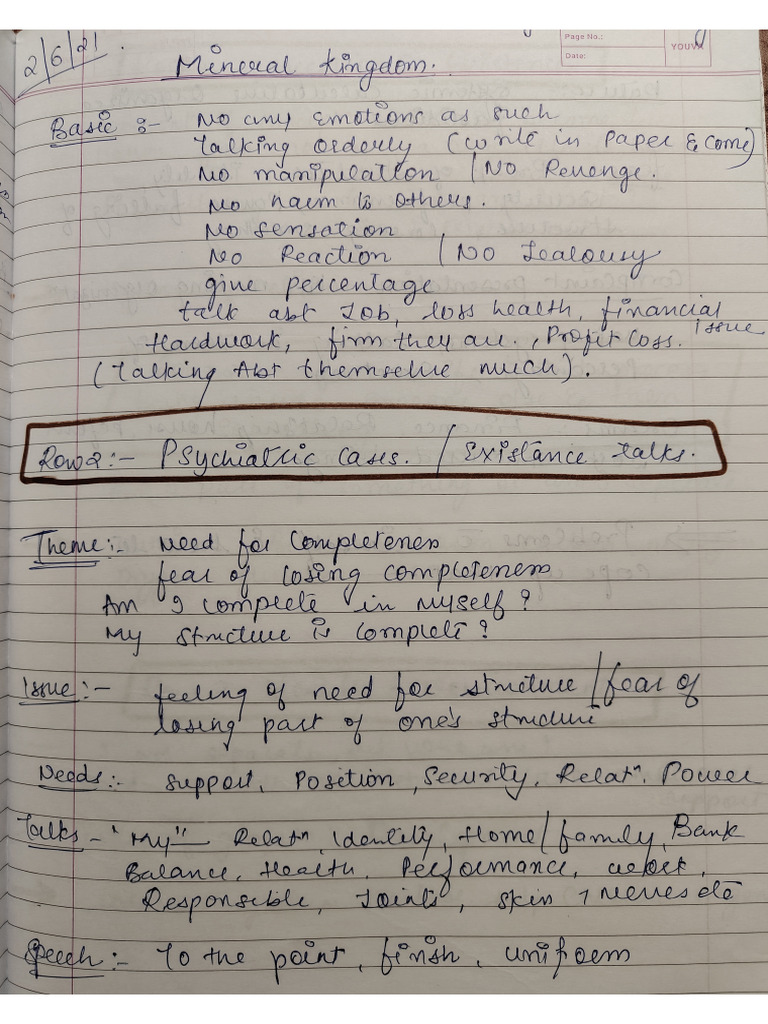 Page No.:
Date:
YOUVA
2/6/21.
Mineral Kingdom.
Basic :- No any emotions as such
Talking orderly (write in paper & come)
No manipulation / No Revenge.
No harm to others.
No sensation
No Reaction / No Jealousy
give percentage
talk abt Job, loss health, financial issue
Hardwork, firm they are, Profit loss.
(Talking Abt themselve much).
Row 2:- Psychiatric cases. / Existance talks.
Theme:- Need for completeness
fear of losing completeness
Am I complete in myself?
My structure is complete?
Issue:- feeling of need for structure / fear of
losing part of one's structure
Needs:- Support, Position, Security, Relatn, Power
Talks - "My" - Relatn, Identity, Home/family, Bank
Balance, Health, Performance, work,
Responsible, Joints, skin, nerves etc
Speech:- To the point, finish, uniform